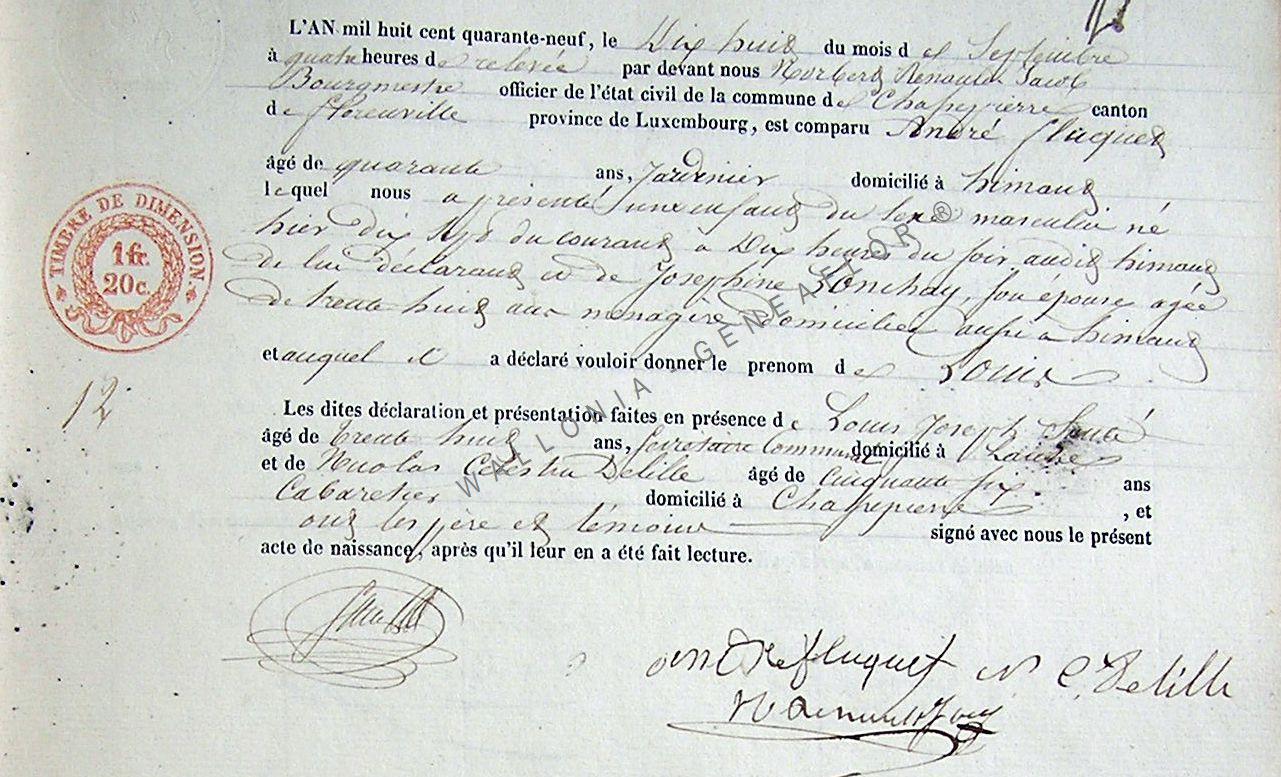 L'AN mil huit cent quarante-neuf, le Dix huit du mois d es Septembre
à quatre heures de relevée par devant nous Norbert Renauld Jacob
Bourgmestre officier de l'état civil de la commune de Chassepierre canton
de florenville province de Luxembourg, est comparu André fluquet
âgé de quarante ans, Jardinier domicilié à himaut
lequel nous a présenté un enfant du sexe masculin né
hier dix sept du courant à Dix heures du soir audit himaut
de lui déclarant et de Josephine Lonchay, son épouse agée
de trente huit ans menagère domiciliée aussi à himaut
et auquel il a déclaré vouloir donner le prenom de Louis
Les dites déclaration et présentation faites en présence de Louis Joseph
âgé de trente huit ans, secretaire Communal domicilié à
et de Nicolas Célestin Delille âgé de cinquante six ans
Cabaretier domicilié à Chassepierre, et
ont les père et témoins signé avec nous le présent
acte de naissance, après qu'il leur en a été fait lecture.
TIMBRE DE DIMENSION.
1 fr.
20 c.
12
WALLONIA - GENEALOR®
andré fluquet N C Delille
N Renauld Jacob